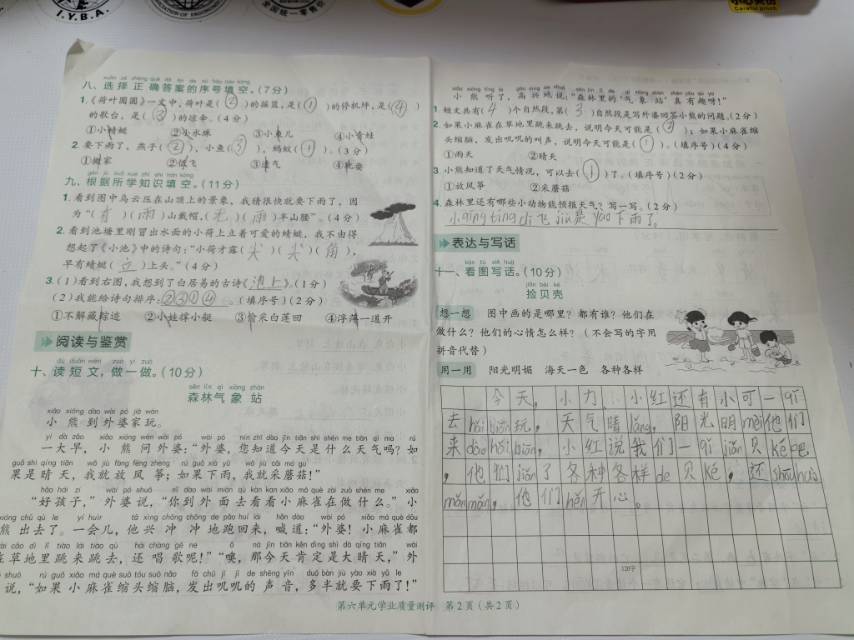 I.Y.B.A.
八、选择正确答案的序号填空。(7分)
1.《荷叶圆圆》一文中,荷叶是( ② )的摇篮,是( ① )的停机坪,是( ④ )
的歌台,是( ③ )的凉伞。(4分)
①小蜻蜓 ②小水珠 ③小鱼儿 ④小青蛙
2.要下雨了,燕子( ② ),小鱼( ③ ),蚂蚁( ① )。(3分)
①搬家 ②低飞 ③透气
九、根据所学知识填空。(11分)
1.看到图中乌云压在山顶上的景象,我猜很快就要下雨了,因
为“( 有 )( 雨 )山戴帽,( 无 )( 雨 )半山腰”。(4分)
2.看到池塘里刚冒出水面的小荷上立着可爱的蜻蜓,我不由得
想起了《小池》中的诗句:“小荷才露( 尖 )( 尖 )( 角 ),
早有蜻蜓( 立 )上头。”(4分)
3.(1)看到右图,我想到了白居易的古诗《池上》。(1分)
(2)我能给诗句排序:②③①④。(填序号)(2分)
①不解藏踪迹 ②小娃撑小艇 ③偷采白莲回 ④浮萍一道开
阅读与鉴赏
十、读短文,做一做。(10分)
森林气象站
小熊到外婆家玩。
一大早,小熊问外婆:“外婆,您知道今天是什么天气吗?如
果是晴天,我就放风筝;如果下雨,我就采蘑菇!”
“好孩子,”外婆说,“你到外面去看看小麻雀在做什么。”小
熊出去了。一会儿,他兴冲冲地跑回来,喊道:“外婆!小麻雀都
在草地里跳来跳去,还唱歌呢!”“噢,那今天肯定是大晴天,”外
说,“如果小麻雀缩头缩脑,发出叽叽的声音,多半就要下雨了!”
小熊听了,高兴地说:“森林里的‘气象站’真有趣呀!”
1.短文共有( 4 )个自然段,第( 3 )自然段是写外婆回答小熊的问题。(2分)
2.如果小麻雀在草地里跳来跳去,说明今天可能是( ② );如果小麻雀缩
头缩脑,发出叽叽的叫声,说明今天可能是( ① )。(填序号)(2分)
①雨天 ②晴天
3.小熊知道了天气情况,可以去( ① )了。(填序号)(2分)
①放风筝 ②采蘑菇
4.森林里还有哪些小动物能预报天气?写一写。(2分)
小qīng tíng dī飞 jiù是 yào 下雨了。
表达与写话
十一、看图写话。(10分)
捡贝壳
想一想 图中画的是哪里?都有谁?他们在
做什么?他们的心情怎么样?(不会写的字用
拼音代替)
用一用 阳光明媚 海天一色 各种各样
今天,小力、小红还有小可一qǐ
去hǎi biān玩,天气晴lǎng,阳光明mèi他们
来dào hǎi biān,小红说我们一qǐ jiǎn贝ké吧
,他们jiǎn了各种各样de贝ké,
mǎn mǎn,他们hěn开心。
120字
第六单元学业质量测评 第2页(共2页)